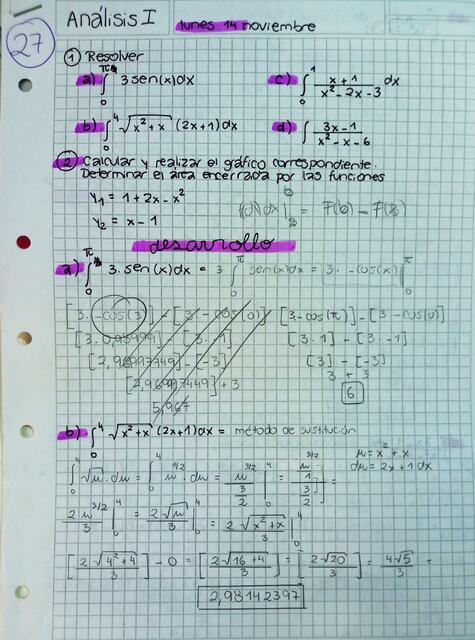 27
Análisis I lunes 14 noviembre
① Resolver
a) ∫₀^π 3 sen(x)dx
c) ∫₀¹ (x+1)/(x²-2x-3) dx
b) ∫₀⁴ √(x²+x) (2x+1)dx
d) ∫ (3x-1)/(x²-x-6)
② Calcular y realizar el gráfico correspondiente.
Determinar el área encerrada por las funciones
y₁ = 1+2x-x²
y₂ = x-1
= F(b) - F(a)
desarrollo
a) ∫₀^π 3.sen(x)dx = 3 ∫₀^π sen(x)dx = 3.-cos(x)|₀^π
[3.-cos(3)] - [3-cos(0)] [3-cos(π)] - [3-cos(0)]
[3.0,98999] [3.-1] [3.1] - [3.-1]
[2,96997749] - [-3] [3] - [-3]
[2,96997449] + 3 3 + 3
5,967 6
b) ∫₀⁴ √(x²+x) (2x+1)dx = método de sustitución
u = x² + x
du = 2x+1 dx
∫₀⁴ √u . du = ∫₀⁴ u^(1/2) . du = u^(3/2)/(3/2) |₀⁴ = u^(3/2)/(3/2) |₀⁴ =
2u^(3/2)/3 |₀⁴ = 2√u/3 |₀⁴ = 2√(x²+x)/3 |₀⁴
[2√(4²+4)/3] - 0 = [2√(16+4)/3] = [2√20/3] = 4√5/3 =
2,98142397